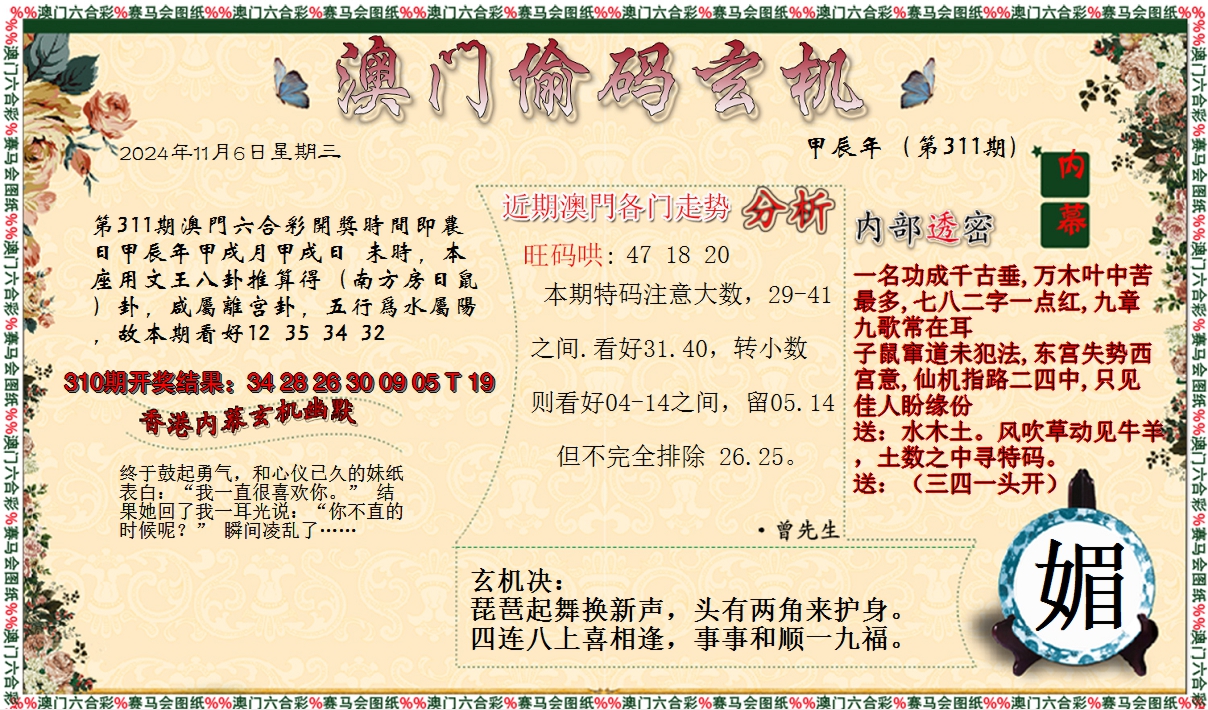 %%澳门六合彩%赛马会图纸%%澳门六合彩%赛马会图纸%%澳门六合彩%赛马会图纸%%澳门六合彩%赛马会图纸%%澳门六合彩%赛马会图纸%%澳门六合彩%赛马会图纸%%
澳门偷码玄机
2024年11月6日星期三
甲辰年（第311期）
内幕
第311期澳門六合彩開獎時間即農
日甲辰年甲戌月甲戌日 未時，本
座用文王八卦推算得（南方房日鼠
）卦，咸屬離宫卦，五行爲水屬陽
，故本期看好12 35 34 32
310期开奖结果：34 28 26 30 09 05 T 19
香港内幕玄机幽默
终于鼓起勇气，和心仪已久的妹纸
表白：“我一直很喜欢你。” 结
果她回了我一耳光说：“你不直的
时候呢？” 瞬间凌乱了⋯⋯
近期澳門各门走势 分析
旺码哄: 47 18 20
本期特码注意大数，29-41
之间.看好31.40，转小数
则看好04-14之间，留05.14
但不完全排除 26.25。
·曾先生
内部透密
一名功成千古垂,万木叶中苦
最多,七八二字一点红,九章
九歌常在耳
子鼠窜道未犯法,东宫失势西
宫意,仙机指路二四中,只见
佳人盼缘份
送：水木土。风吹草动见牛羊
，土数之中寻特码。
送：（三四一头开）
玄机决：
琵琶起舞换新声，头有两角来护身。
四连八上喜相逢，事事和顺一九福。
媚
%%澳门六合彩%赛马会图纸%%澳门六合彩%赛马会图纸%%澳门六合彩%赛马会图纸%%澳门六合彩%赛马会图纸%%澳门六合彩%赛马会图纸%%澳门六合彩%赛马会图纸%%